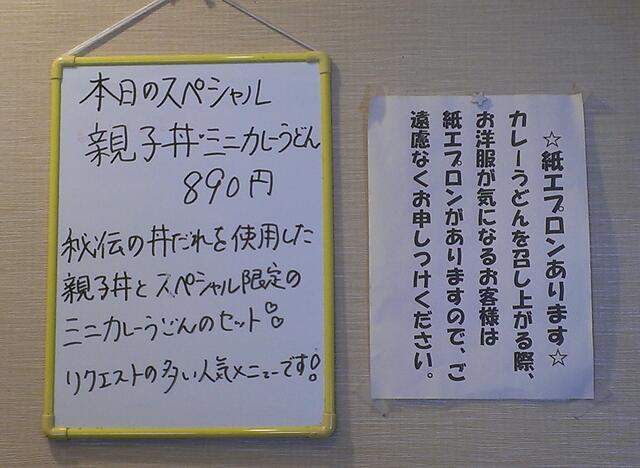 本日のスペシャル
親子丼・ミニカレーうどん
890円
秘伝の丼だれを使用した
親子丼とスペシャル限定の
ミニカレーうどんのセット!
リクエストの多い人気メニューです!
☆紙エプロンあります☆
カレーうどんを召し上がる際、
お洋服が気になるお客様は
紙エプロンがありますので、ご
遠慮なくお申しつけください。